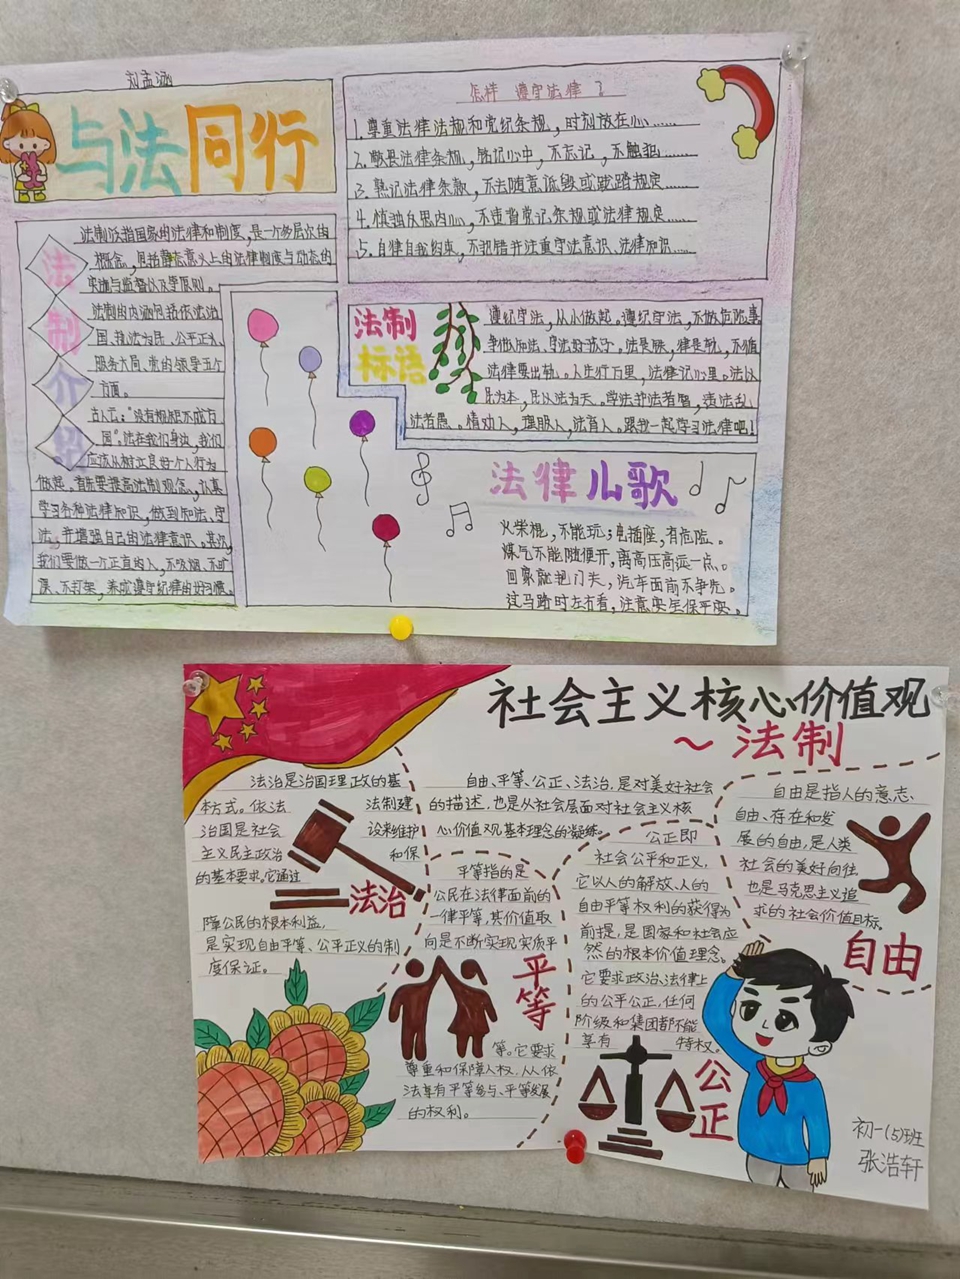 刘孟涵
与法同行
怎样 遵守法律？
1. 尊重法律法规和党纪条规，时刻放在心……
2. 敬畏法律条规，铭记心中，不忘记，不触犯……
3. 熟记法律条款，不去随意诋毁或践踏规定……
4. 慎独反思内心，不违背党记条规或法律规定……
5. 自律自我约束，不犯错并注重守法意识、法律知识……
法制介绍
法制泛指国家的法律和制度，是一个多层次的
概念，包括静态意义上的法律制度与动态的
实施与监督以及原则。
法制的内涵包括依法治
国、执法为民、公平正义、
服务大局、党的领导五个
方面。
古人云："没有规矩不成方
圆"。法在我们身边，我们
应该从树立良好个人行为
做起，首先要提高法制观念，认真
学习各种法律知识，做到知法、守
法，并增强自己的法律意识。其次，
我们要做一个正直的人，不吸烟、不赌
、不打架，养成遵守纪律的好习惯。
法制
标语
遵纪守法，从小做起。遵纪守法，不做危险事
争做知法、守法好孩子，法是蹊，律是轨，不循
法律要出轨。人生行万里，法律记心里。法以
民为本，民以法为天。学法护法者智，违法乱
法者愚。情劝人，理服人，法育人。跟我一起学习法律吧！
法律儿歌
火柴棍，不能玩；电插座，有危险。
煤气不能随便开，离高压高远一点。
回家就把门关，汽车面前不争先。
过马路时左右看，注意安全保平安。
社会主义核心价值观
～法制
法治是治国理政的基
本方式。依法
治国是社会
主义民主政治
的基本要求。它通过
法制建
设来维护
和保
障公民的根本利益，
是实现自由平等、公平正义的制
度保证。
法治
自由、平等、公正、法治，是对美好社会
的描述，也是从社会层面对社会主义核
心价值观基本理念的凝练。
平等指的是
公民在法律面前的
一律平等，其价值取
向是不断实现实质平
等。它要求
尊重和保障人权，人人依
法享有平等参与、平等发展
的权利。
平等
公正即
社会公平和正义，
它以人的解放、人的
自由平等权利的获得为
前提，是国家和社会应
然的根本价值理念。
它要求政治、法律上
的公平公正，任何
阶级和集团都不能
享有 特权。
公正
自由是指人的意志、
自由、存在和发
展的自由，是人类
社会的美好向往
也是马克思主义追
求的社会价值目标。
自由
初一(5)班
张浩轩